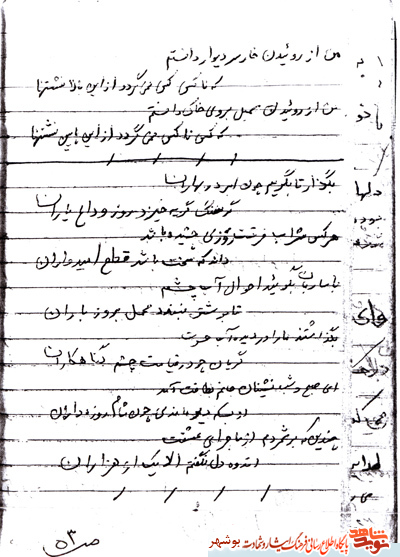 من از روئیدن خار سر دیوار دانستم
که ناکس کس نمی گردد از این بالا نشستنها
من از روئیدن سمل بروی خاک دانستم
که کس ناکس نمی گردد از این پایین نشستنها
/ / / /
بگذار تا بگریم چون ابر در بهاران
کز سنگ گریه خیزد روز وداع یاران
هر کس شراب فرقت روزی چشیده باشد
داند که سخت باشد قطع امیدواران
با ساربان بگوئید احوال آب چشمم
تا بر شتر نبندد محمل بروز باران
بگذاشتند ما را در دیده آب حسرت
گریان چو در قیامت چشم گناهکاران
ای صبح شب نشینان جانم بطاقت آمد
از بسکه دیر ماندی چون شام روزه داران
چندین که برشمردم از ماجرای عشقت
اندوه دل نگفتم الا یک از هزاران
/ / / /
ص ۵۳
دلها
وای
نوید شاهد
پایگاه اطلاع رسانی فرهنگ ایثار و شهادت بوشهر